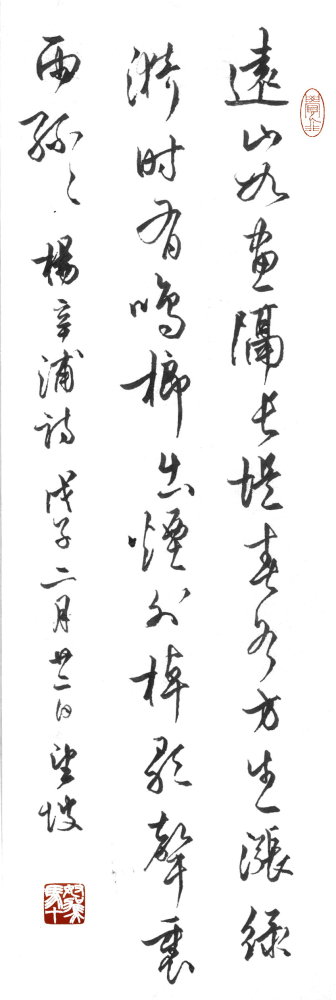 遠山如畫隔長堤春水方生漲綠
漪時有鳴榔出煙外棹歌聲裏
雨絲々楊辛浦詩戊子二月廿二日